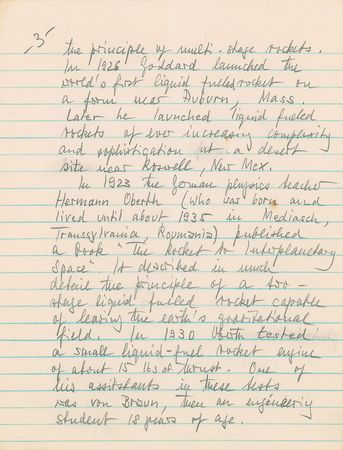 3
the principle of multi-stage rockets.
In 1926 Goddard launched the
world's first liquid fueled rocket on
a farm near Auburn, Mass.
Later he launched liquid fueled
rockets of ever increasing complexity
and sophistication at a desert
site near Roswell, New Mex.
In 1923 the German physics teacher
Hermann Oberth (who was born and
lived until about 1935 in Mediasch,
Transsylvania, Roumania) published
a book "The Rocket to Interplanetary
Space" It described in much
detail the principle of a two-
stage liquid fuelled rocket capable
of leaving the earth's gravitational
field. In 1930 Oberth tested
a small liquid-fuel rocket engine
of about 15 lbs of thrust. One of
his assistants in these tests
was von Braun, then an engineering
student 18 years of age.